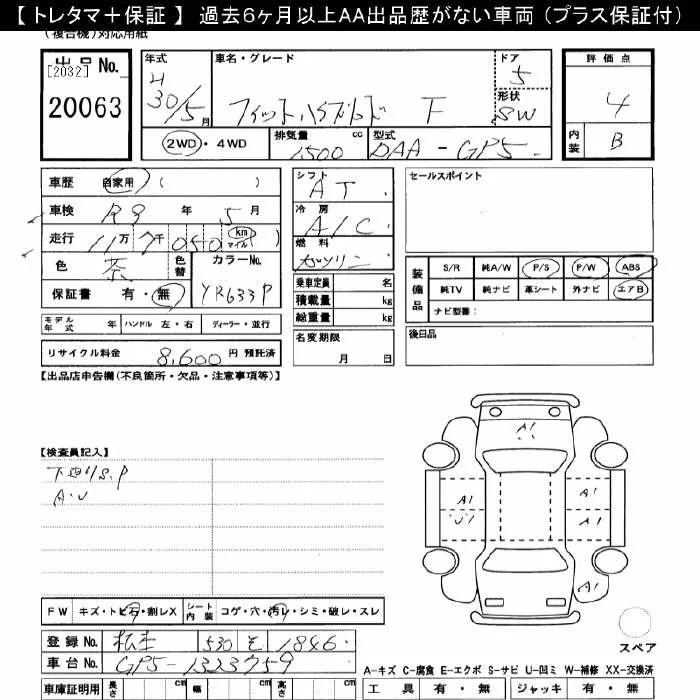 【 トレタマ＋保証 】 過去6ヶ月以上AA出品歴がない車両 （プラス保証付）
(複合機)対応用紙
出品No.
[2032]
20063
年式
H
30/5 月
車名・グレード
フィットハイブリッド F
ドア
5
形状
SW
評価点
4
内装 B
2WD・4WD
排気量 cc
1500
型式
DAA-GP5
車歴 自家用 ( )
車検 R9 年 5 月
走行 11 万 7 千 050 km マイル
色 茶 色替 カラーNo.
YR633P
保証書 有・無
モデル年式 年 ハンドル 左・右 ディーラー・並行
リサイクル料金 8,600 円 預託済
シフト
AT
冷房
A/C
燃料
ガソリン
乗車定員 名
積載量 kg
総重量 kg
名変期限
月 日
セールスポイント
装備品
S/R 純A/W P/S P/W ABS
純TV 純ナビ 革シート 外ナビ エアB
ナビ型番：
後日品
【出品店申告欄(不良箇所・欠品・注意事項等)】
【検査員記入】
下廻りS.P
A.U
A1
A1 A1
U1 A1
A1
スペア
FW キズ・トビ石・割レX シート内装 コゲ・穴・汚レ・シミ・破レ・スレ
登録No. 松本 530 そ 1846
車台No. GP5-1323759
車庫証明用 長さ cm 幅 cm 高さ cm
A-キズ C-腐食 E-エクボ S-サビ U-凹ミ W-補修 XX-交換済
工具 有・無 ジャッキ 有・無